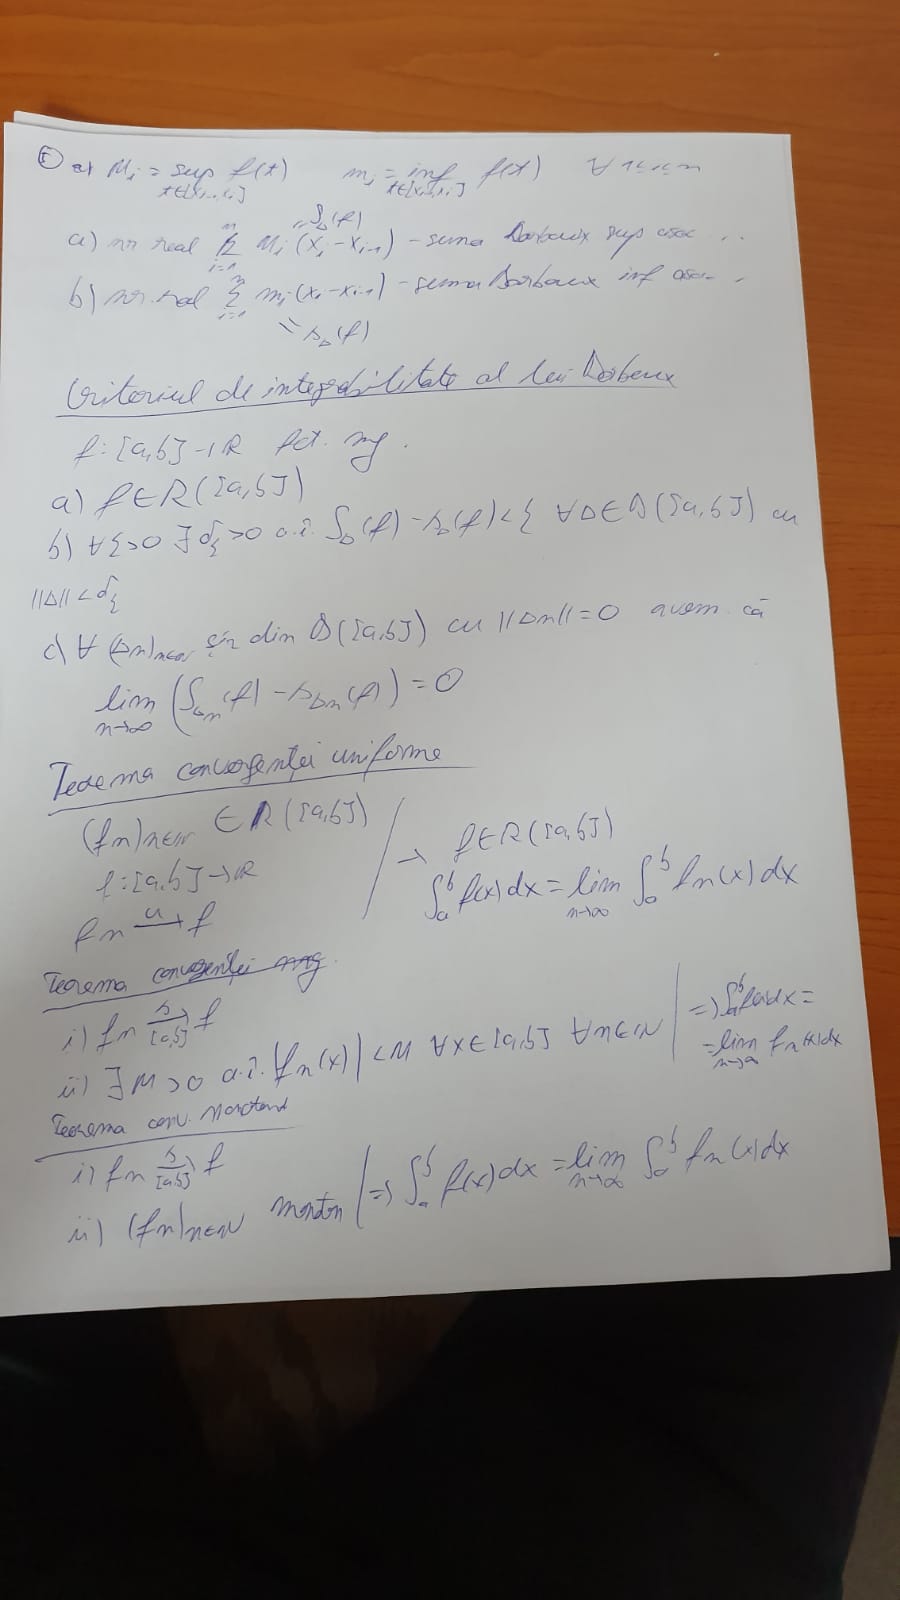 a) Mᵢ = sup f(t) mᵢ = inf f(t) ∀ 1≤i≤n
t∈[xᵢ₋₁,xᵢ] t∈[xᵢ₋₁,xᵢ]
a) nr real Σᵢ₌₁ⁿ Mᵢ(xᵢ-xᵢ₋₁) - suma Darboux sup asoc ...
= S_Δ(f)
b) nr. real Σᵢ₌₁ⁿ mᵢ(xᵢ-xᵢ₋₁) - suma Darboux inf asoc
= s_Δ(f)
Criteriul de integrabilitate al lui Darboux
f: [a,b] → ℝ fct. mg.
a) f∈R([a,b])
b) ∀ξ>0 ∃δ_ξ>0 a.î. S_Δ(f) - s_Δ(f) < ξ ∀Δ∈D([a,b]) cu
||Δ|| < δ_ξ
c) ∀ (Δn)n∈ℕ șir din D([a,b]) cu ||Δn|| = 0 avem că
lim n→∞ (S_Δn(f) - s_Δn(f)) = 0
Teorema convergenței uniforme
(fn)n∈ℕ ∈ R([a,b])
f: [a,b] → ℝ → f∈R([a,b])
fn →ᵘ f ∫ₐᵇ f(x)dx = lim n→∞ ∫ₐᵇ fn(x)dx
Teorema convergenței mg.
i) fn →ˢ [a,b] f
ii) ∃M>0 a.î. |fn(x)| <M ∀x∈[a,b] ∀n∈ℕ | =) ∫ₐᵇ f(x)dx =
= lim n→∞ fn(x)dx
Teorema conv. Monotone
i) fn →ˢ [a,b] f
ii) (fn)n∈ℕ monoton | =) ∫ₐᵇ f(x)dx = lim n→∞ ∫ₐᵇ fn(x)dx